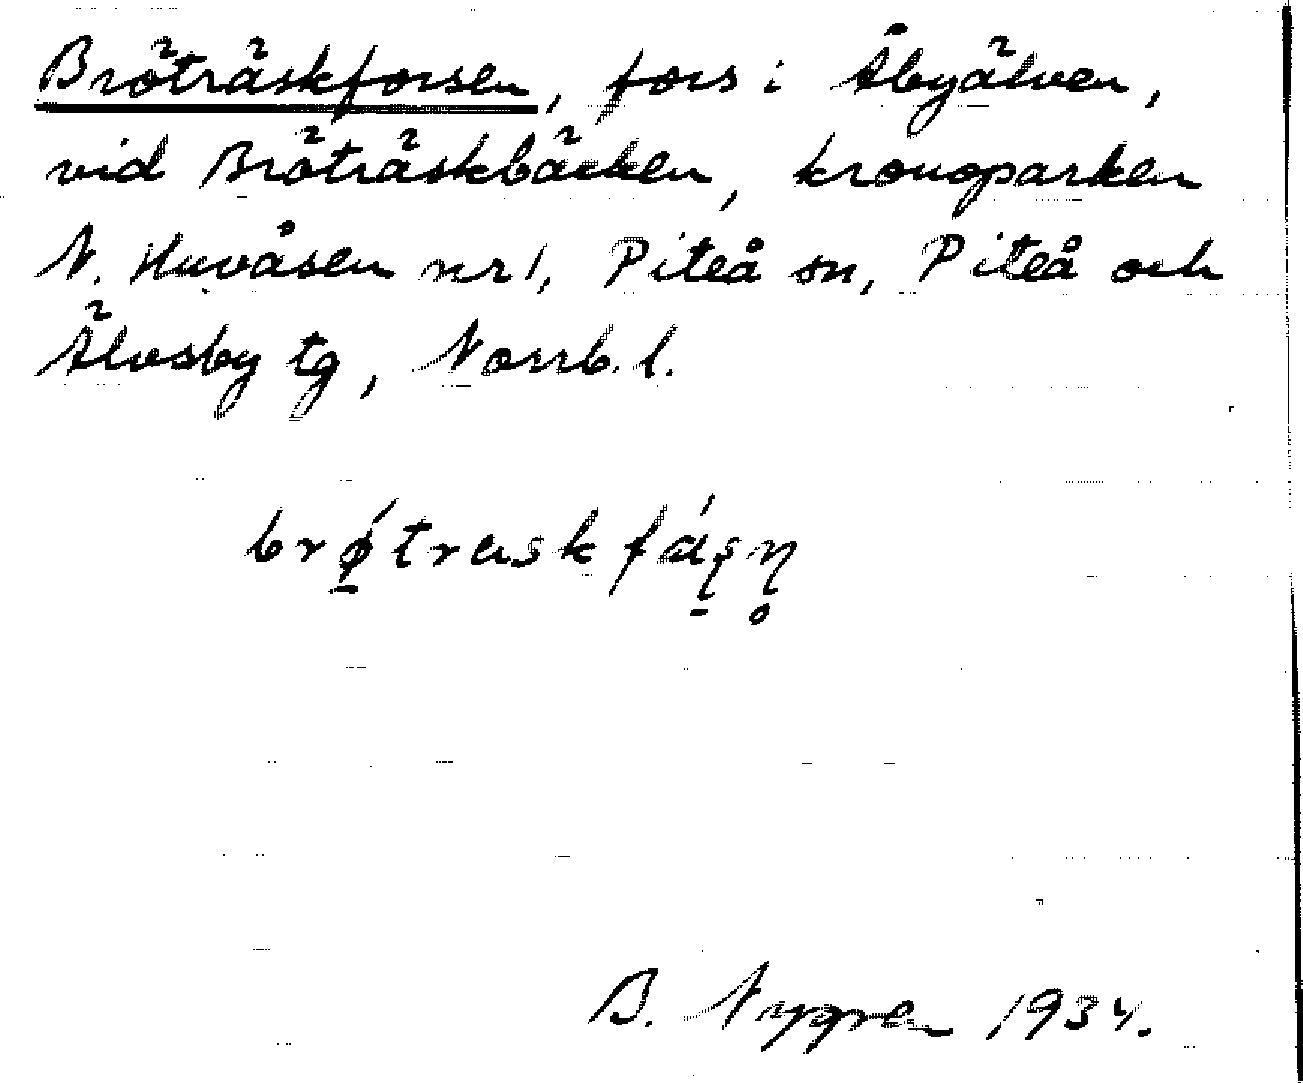 Bröträskforsen, fors i Åbyälven,
vid Bröträskbäcken, kronoparken
N. Huvåsen nr 1, Piteå sn, Piteå och
Älvsby tg, Norrb. l.
brǿ̱træskfáʂ̱ɳ̥
B. Nygren 1934.